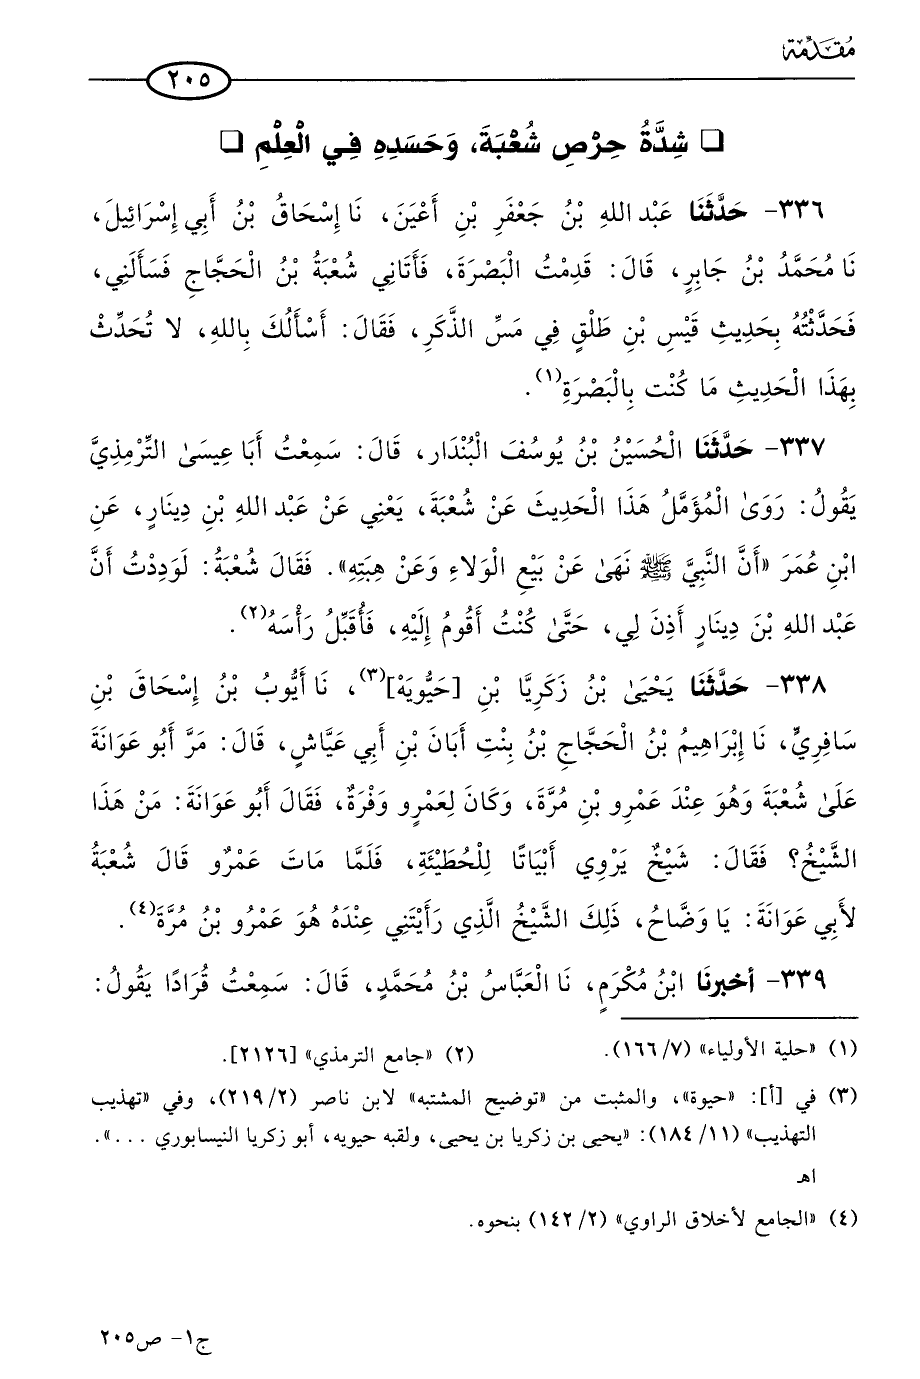 مُقَدِّمَة
٢٠٥
❑ شِدَّةُ حِرْصِ شُعْبَةَ، وَحَسَدِهِ فِي الْعِلْمِ ❑
٣٣٦- حَدَّثَنَا عَبْد اللهِ بْنُ جَعْفَرِ بْنِ أَعْيَنَ، نَا إِسْحَاقُ بْنُ أَبِي إِسْرَائِيلَ،
نَا مُحَمَّدُ بْنُ جَابِرٍ، قَالَ: قَدِمْتُ الْبَصْرَةَ، فَأَتَانِي شُعْبَةُ بْنُ الْحَجَّاجِ فَسَأَلَنِي،
فَحَدَّثْتُهُ بِحَدِيثِ قَيْسِ بْنِ طَلْقٍ فِي مَسِّ الذَّكَرِ، فَقَالَ: أَسْأَلُكَ بِاللهِ، لا تُحَدِّثْ
بِهَذَا الْحَدِيثِ مَا كُنْت بِالْبَصْرَةِ(١).
٣٣٧- حَدَّثَنَا الْحُسَيْنُ بْنُ يُوسُفَ الْبُنْدَار، قَالَ: سَمِعْتُ أَبَا عِيسَىٰ التِّرْمِذِيَّ
يَقُولُ: رَوَىٰ الْمُؤَمَّلُ هَذَا الْحَدِيثَ عَنْ شُعْبَةَ، يَعْنِي عَنْ عَبْد اللهِ بْنِ دِينَارٍ، عَنِ
ابْنِ عُمَرَ «أَنَّ النَّبِيَّ ﷺ نَهَىٰ عَنْ بَيْعِ الْوَلاءِ وَعَنْ هِبَتِهِ». فَقَالَ شُعْبَةُ: لَوَدِدْتُ أَنَّ
عَبْد اللهِ بْنَ دِينَارٍ أَذِنَ لِي، حَتَّىٰ كُنْتُ أَقُومُ إِلَيْهِ، فَأُقَبِّلُ رَأْسَهُ(٢).
٣٣٨- حَدَّثَنَا يَحْيَىٰ بْنُ زَكَرِيَّا بْنِ [حَيُّويَهْ](٣)، نَا أَيُّوبُ بْنُ إِسْحَاقَ بْنِ
سَافِرِيٍّ، نَا إِبْرَاهِيمُ بْنُ الْحَجَّاجِ بْنُ بِنْتِ أَبَانَ بْنِ أَبِي عَيَّاشٍ، قَالَ: مَرَّ أَبُو عَوَانَةَ
عَلَىٰ شُعْبَةَ وَهُوَ عِنْدَ عَمْرِو بْنِ مُرَّةَ، وَكَانَ لِعَمْرٍو وَفْرَةٌ، فَقَالَ أَبُو عَوَانَةَ: مَنْ هَذَا
الشَّيْخُ؟ فَقَالَ: شَيْخٌ يَرْوِي أَبْيَاتًا لِلْحُطَيْئَةِ، فَلَمَّا مَاتَ عَمْرٌو قَالَ شُعْبَةُ
لأَبِي عَوَانَةَ: يَا وَضَّاحُ، ذَلِكَ الشَّيْخُ الَّذِي رَأَيْتَنِي عِنْدَهُ هُوَ عَمْرُو بْنُ مُرَّةَ(٤).
٣٣٩- أخبرنَا ابْنُ مُكْرَمٍ، نَا الْعَبَّاسُ بْنُ مُحَمَّدٍ، قَالَ: سَمِعْتُ قُرَادًا يَقُولُ:
(١) «حلية الأولياء» (٧/ ١٦٦). (٢) «جامع الترمذي» [٢١٢٦].
(٣) في [أ]: «حيوة»، والمثبت من «توضيح المشتبه» لابن ناصر (٢/ ٢١٩)، وفي «تهذيب
التهذيب» (١١/ ١٨٤): «يحيى بن زكريا بن يحيى، ولقبه حيويه، أبو زكريا النيسابوري ...».
اهـ
(٤) «الجامع لأخلاق الراوي» (٢/ ١٤٢) بنحوه.
ج١- ص٢٠٥